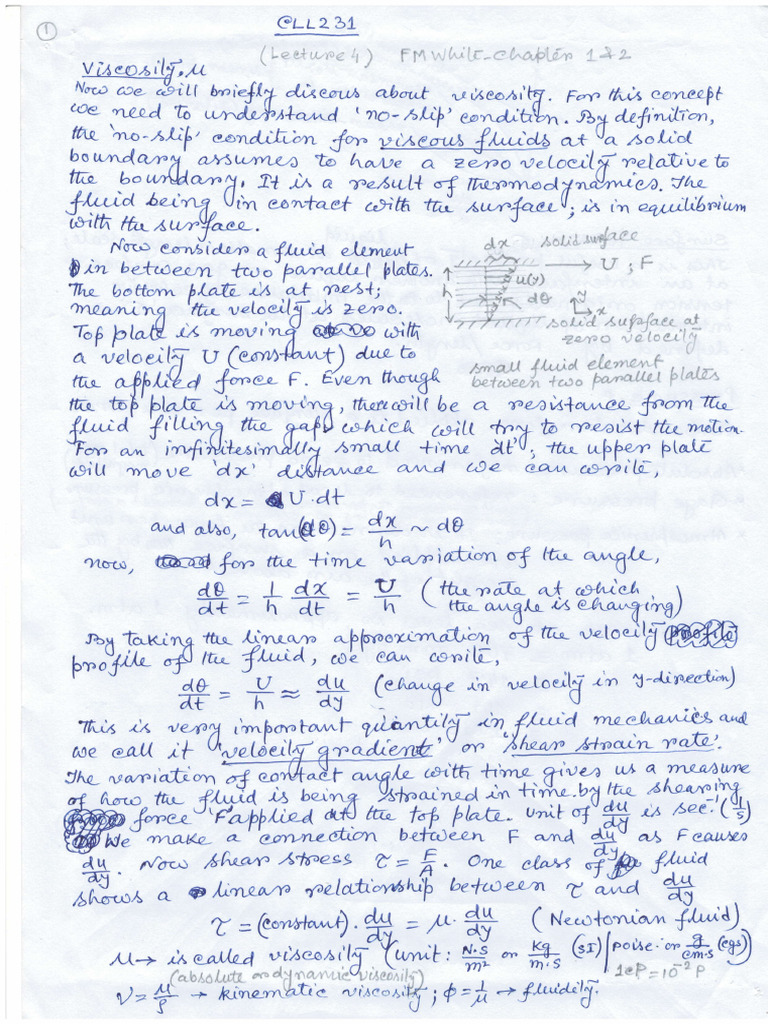 ①
CLL231
(Lecture 4) FM White-Chapter 1&2
Viscosity, μ
Now we will briefly discous about viscosity. For this concept
we need to understand 'no-slip' condition. By definition,
the 'no-slip' condition for viscous fluids at a solid
boundary assumes to have a zero velocity relative to
the boundary. It is a result of thermodynamics. The
fluid being in contact with the surface; is in equilibrium
with the surface.
Now consider a fluid element
in between two parallel plates.
The bottom plate is at rest;
meaning the velocity is zero.
Top plate is moving with
a velocity U (constant) due to
the applied force F. Even though
dx solid surface
U ; F
h u(y)
dθ y x
solid surface at
zero velocity
small fluid element
between two parallel plates
the top plate is moving, there will be a resistance from the
fluid filling the gap which will try to resist the motion.
For an infinitesimally small time 'dt', the upper plate
will move 'dx' distance and we can write,
dx = U·dt
and also, tan(dθ) = dx/h ~ dθ
now, for the time variation of the angle,
dθ/dt = 1/h dx/dt = U/h (the rate at which
the angle is changing)
By taking the linear approximation of the velocity
profile of the fluid, we can write,
dθ/dt = U/h ≈ du/dy (change in velocity in y-direction)
This is very important quantity in fluid mechanics and
we call it 'velocity gradient' or 'shear strain rate'.
The variation of contact angle with time gives us a measure
of how the fluid is being strained in time by the shearing
force 'F' applied at the top plate. Unit of du/dy is sec⁻¹ (1/s)
We make a connection between F and du/dy as F causes
du/dy. Now shear stress τ = F/A. One class of fluid
shows a linear relationship between τ and du/dy
τ = (constant)·du/dy = μ·du/dy (Newtonian fluid)
μ → is called viscosity (unit: N·s/m² or kg/m·s (SI) / poise or g/cm·s (cgs))
(absolute or dynamic viscosity) 1cP = 10⁻² P
ν = μ/ρ → kinematic viscosity; φ = 1/μ → fluidity.